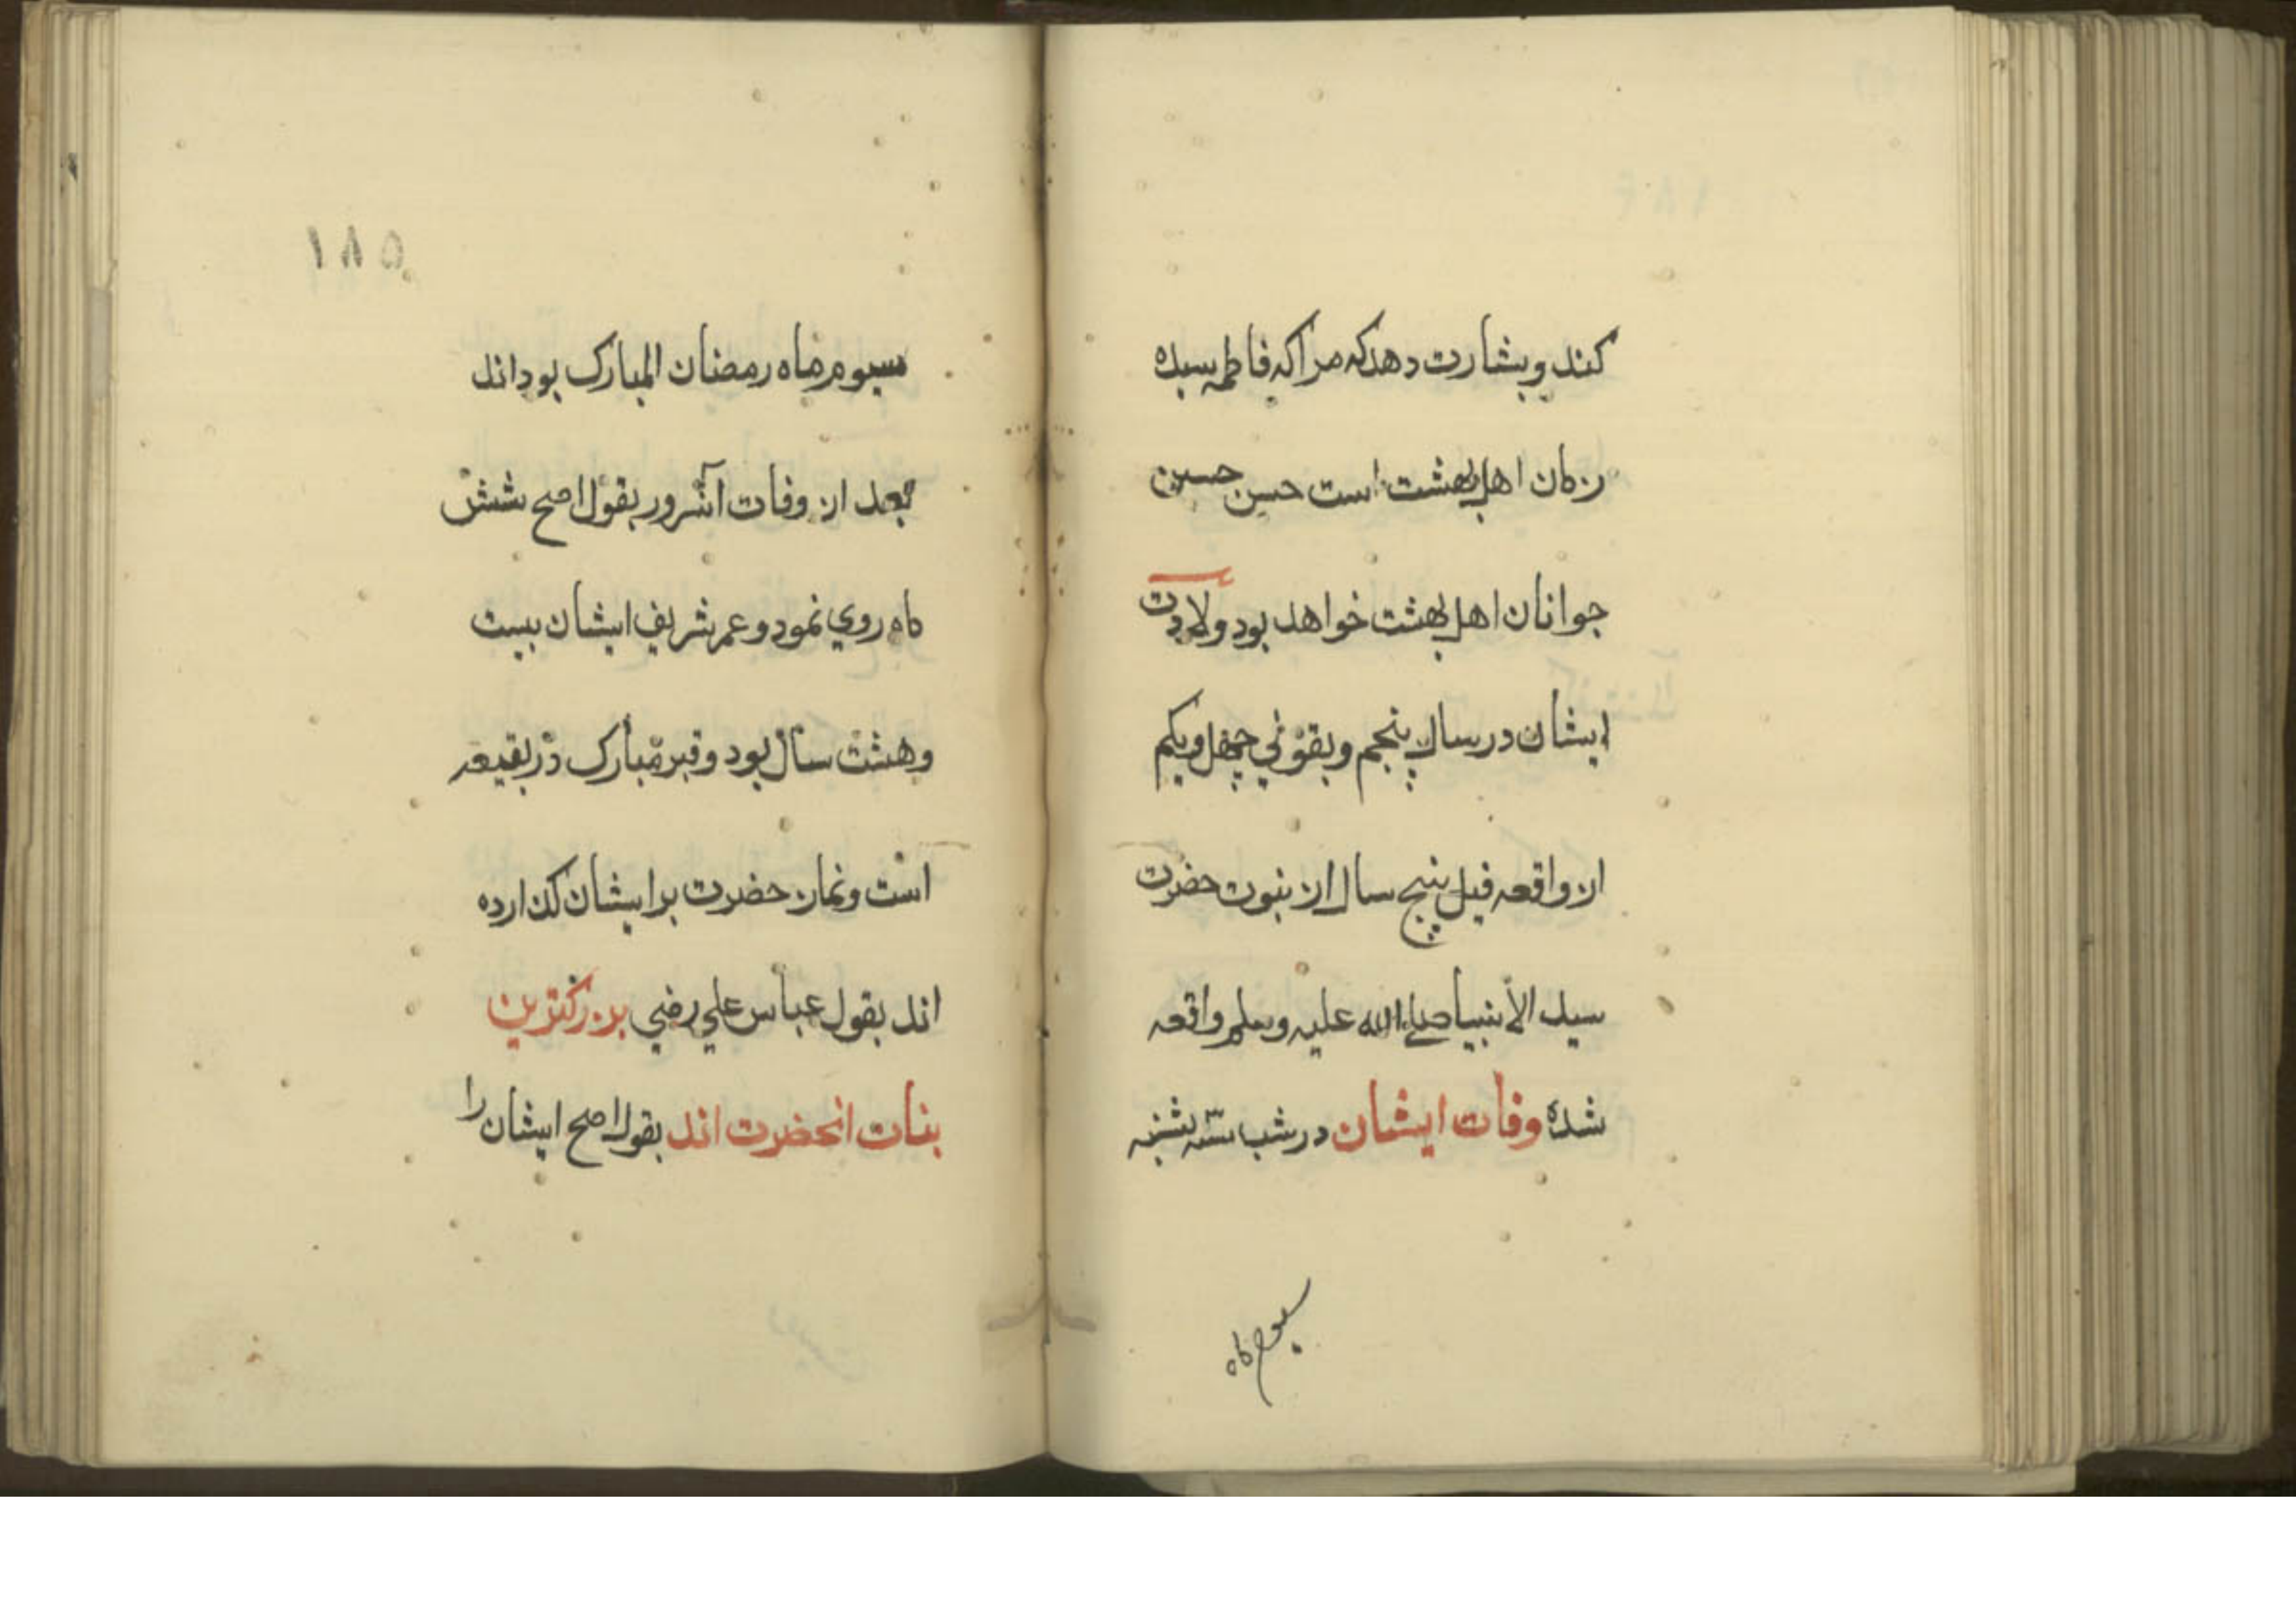 کند و بشارت دهد که مرا که فاطمه سیده
زنان اهل بهشت است حسن حسین
جوانان اهل بهشت خواهد بود ولادت
ایشان در سال پنجم و بقولی چهل و یکم
از واقعه فیل پنج سال از نبوت حضرت
سید الأنبیا صلی الله علیه وسلم واقعه
شده وفات ایشان در شب سه شنبه
سیوم ماه
۱۸۵
سیوم ماه رمضان المبارک بود اند
بعد از وفات آنسرور بقول اصح شش
ماه روي نمود و عمر شریف ایشان بیست
و هشت سال بود و قبر مبارک در بقیعه
است و نماز حضرت بر ایشان گذارده
اند بقول عباس علي رضي بزرگترین
بنات انحضرت اند بقول اصح ایشان را